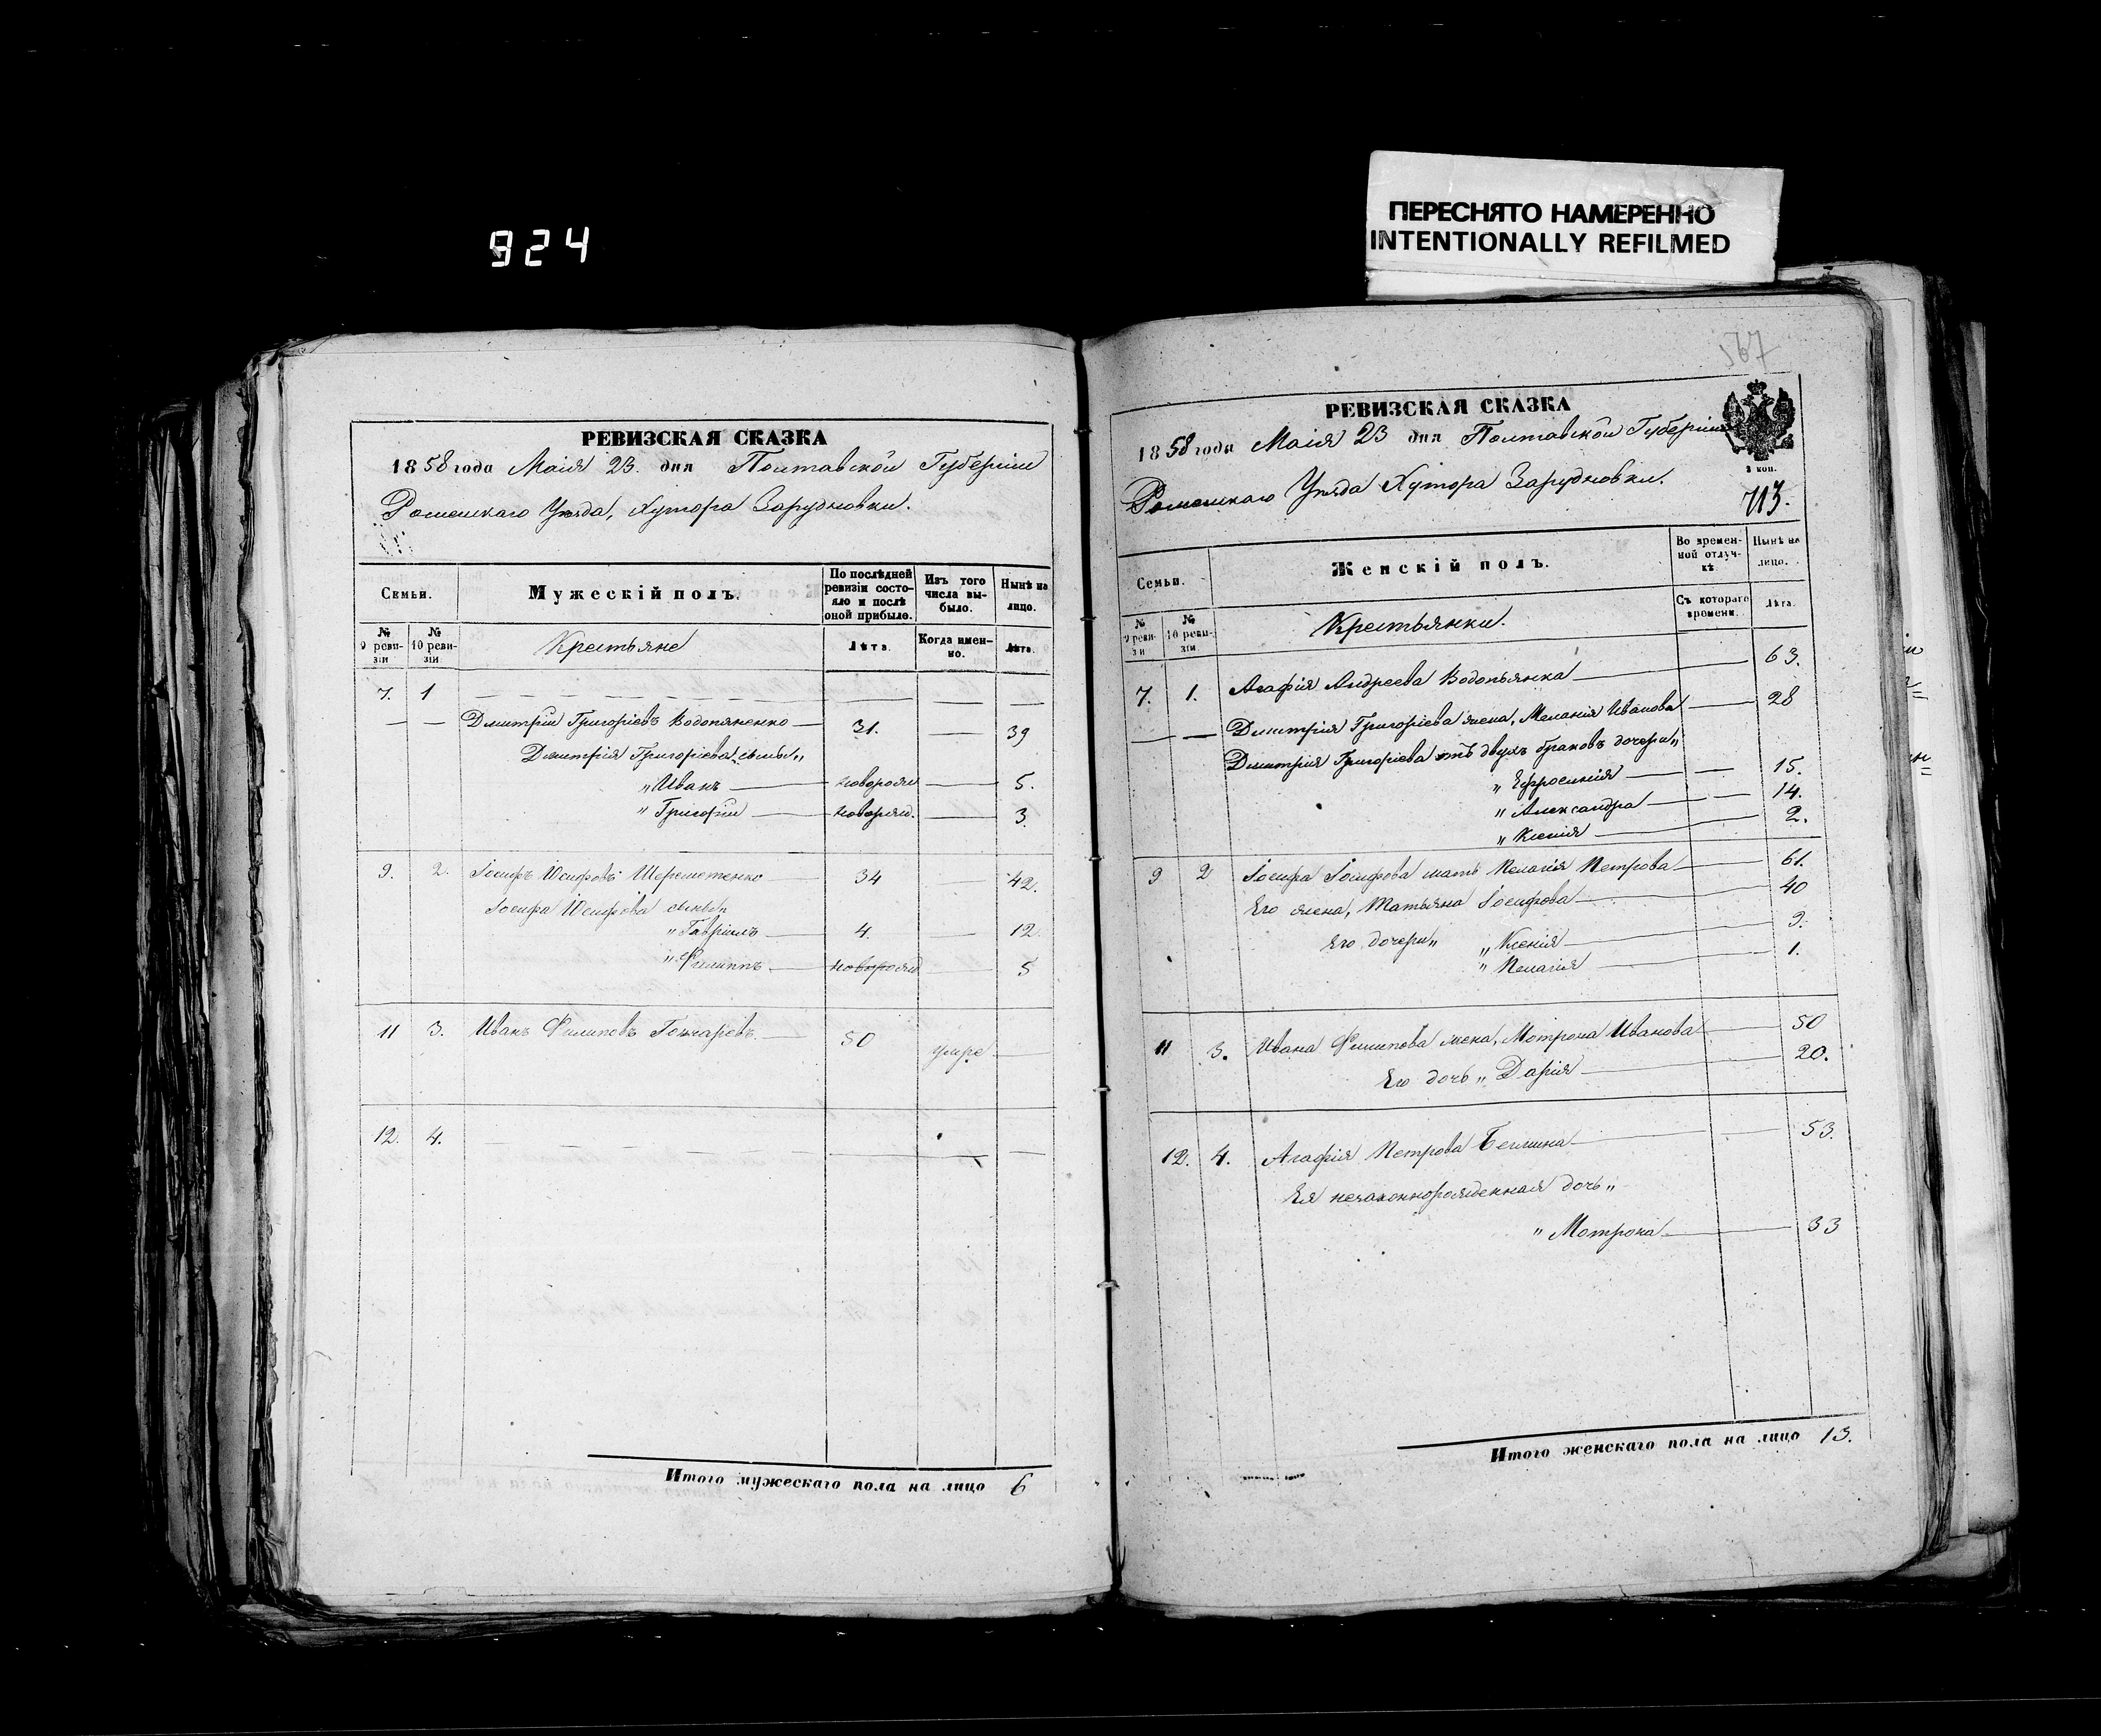 924
ПЕРЕСНЯТО НАМЕРЕННО
INTENTIONALLY REFILMED
РЕВИЗСКАЯ СКАЗКА
1858 года Маія 23. дня Полтавской Губерніи
Роменскаго Уѣзда, Хутора Зарудновки.
Семьи.
Мужескій полъ.
По послѣдней ревизіи состояло и послѣ оной прибыло.
Изъ того числа выбыло.
Нынѣ на лицо.
№ 9 ревизіи
№ 10 ревизіи
Крестьяне
Лѣта.
Когда именно.
Лѣта.
7. 1 — — — — — — — —
— — Дмитрій Григоріевъ Водопяненко — 31. — 39
Дмитрія Григоріева сыны„
„Иванъ — новорожд — 5.
„Григорій — новорожд. — 3.
9. 2. Іосифъ Іосифовъ Шереметенко 34 — 42.
Іосифа Іосифова сыновья
„Гавріилъ — 4. — 12.
„Филиппъ — новорожд — 5
11 3. Иванъ Филиповъ Гончаревъ. — 50 умре —
12. 4. — — — — — — — —
Итого мужескаго пола на лицо 6
567
РЕВИЗСКАЯ СКАЗКА
1858 года Маія 23 дня Полтавской Губерніи
3 коп.
Роменскаго Уѣзда Хутора Зарудновки.
713.
Семьи.
Женскій полъ.
Во временной отлучкѣ.
Нынѣ на лицо.
№ 9 ревизіи
№ 10 ревизіи
Крестьянки.
Съ котораго времени.
Лѣта.
7. 1. Агафія Андреева Водопьянка — 63.
— — Дмитрія Григоріева жена, Меланія Иванова — 28
Дмитрія Григоріева отъ двухъ браковъ дочери„
„ Ефросинія — — 15.
„ Александра — — 14.
„ Ксенія — 2.
9 2 Іосифа Іосифова мать Пелагія Петрова — 61.
Его жена, Татьяна Іосифова — 40
Его дочери„ „Ксенія — 9.
„ Пелагія — 1.
11 3. Ивана Филипова жена, Мотрона Иванова — 50
Его дочь „ Дарія — 20.
12. 4. Агафія Петрова — 53.
Ея незаконнорожденная дочь„
„ Мотрона — 33
Итого женскаго пола на лицо 13.